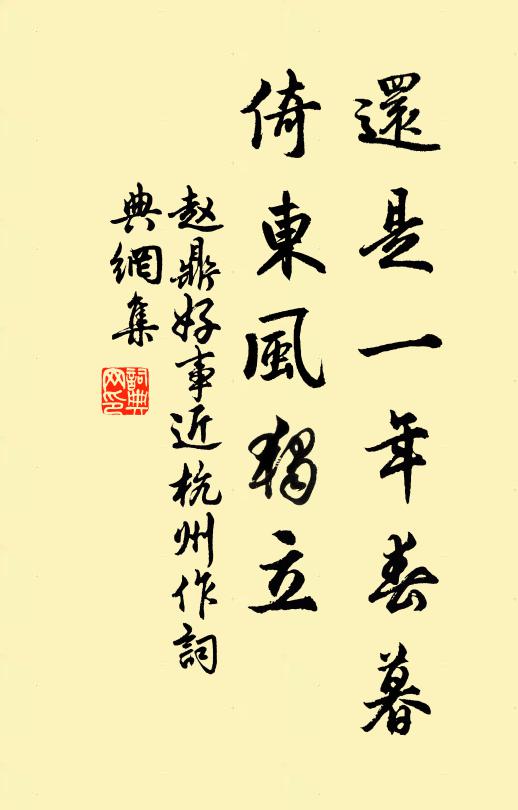 還是一年春暮
倚東風獨立
赵鼎好事近杭州作詞
典網集
詞典
网印